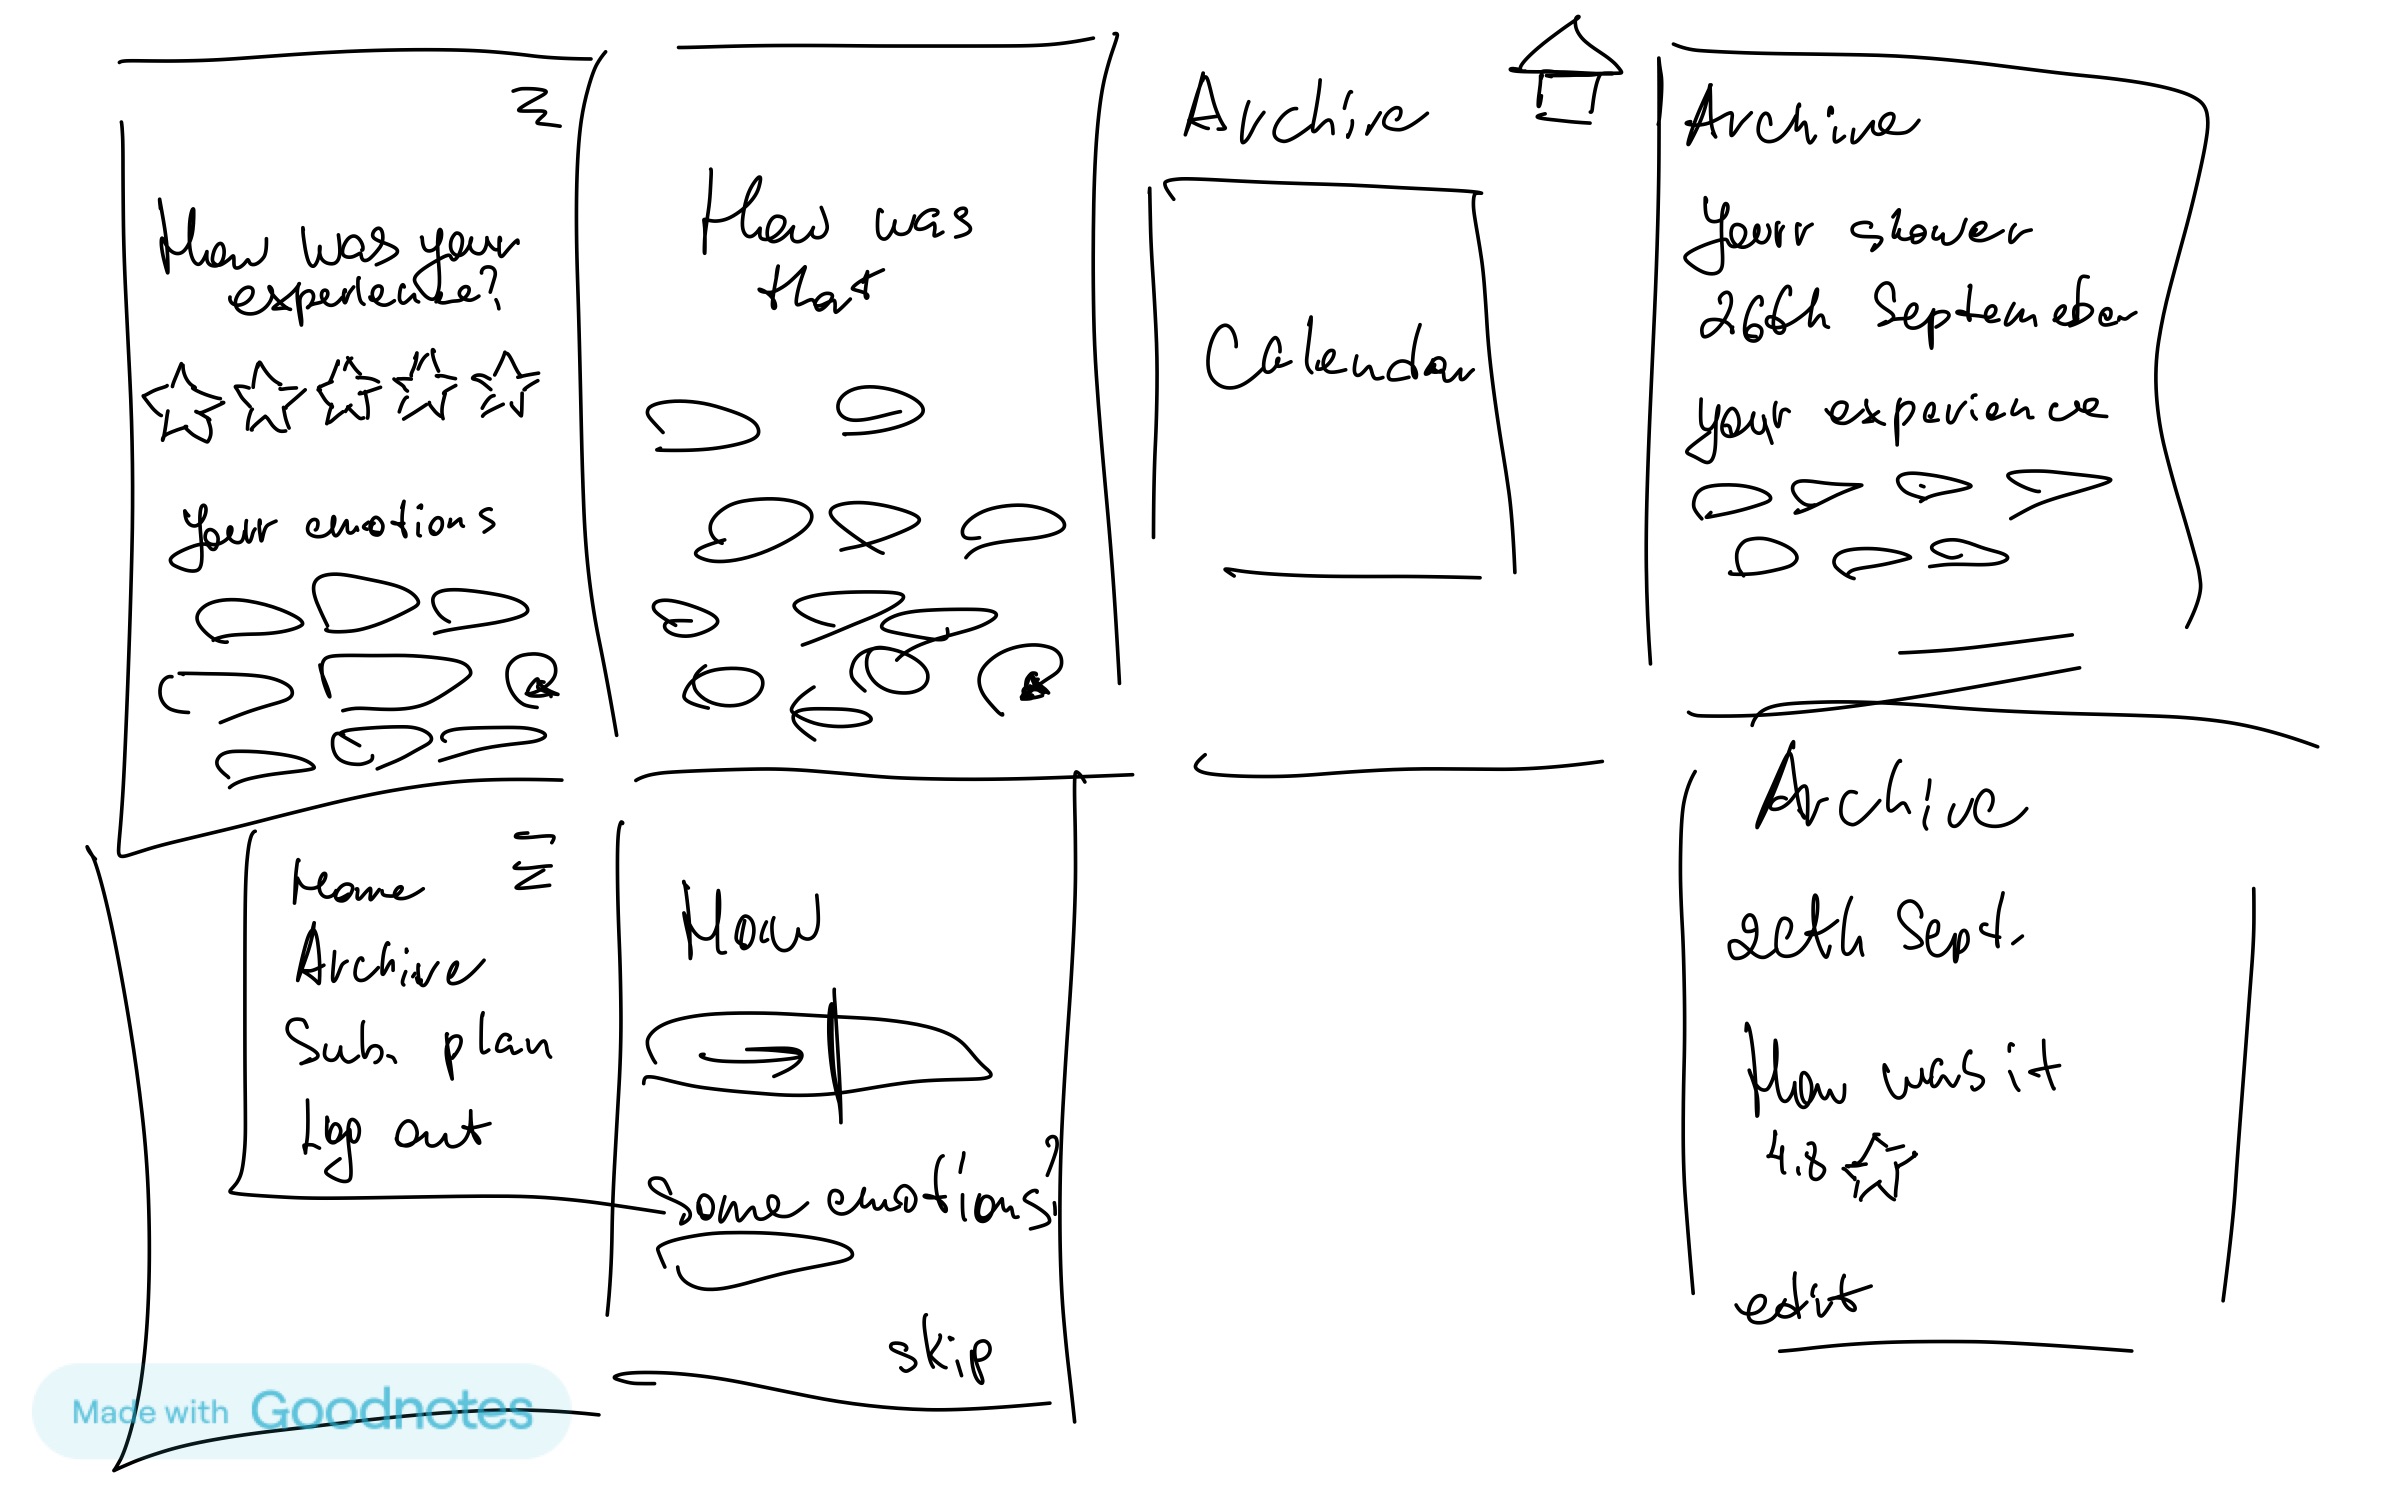 How was your
experience?
Your emotions
How was
that
Archive
Calendar
Archive
Your shower
26th September
your experience
Home
Archive
Sub. plan
Log out
How
Some emotions?
skip
Archive
26th Sept.
How was it
4.8
edit
Made with Goodnotes